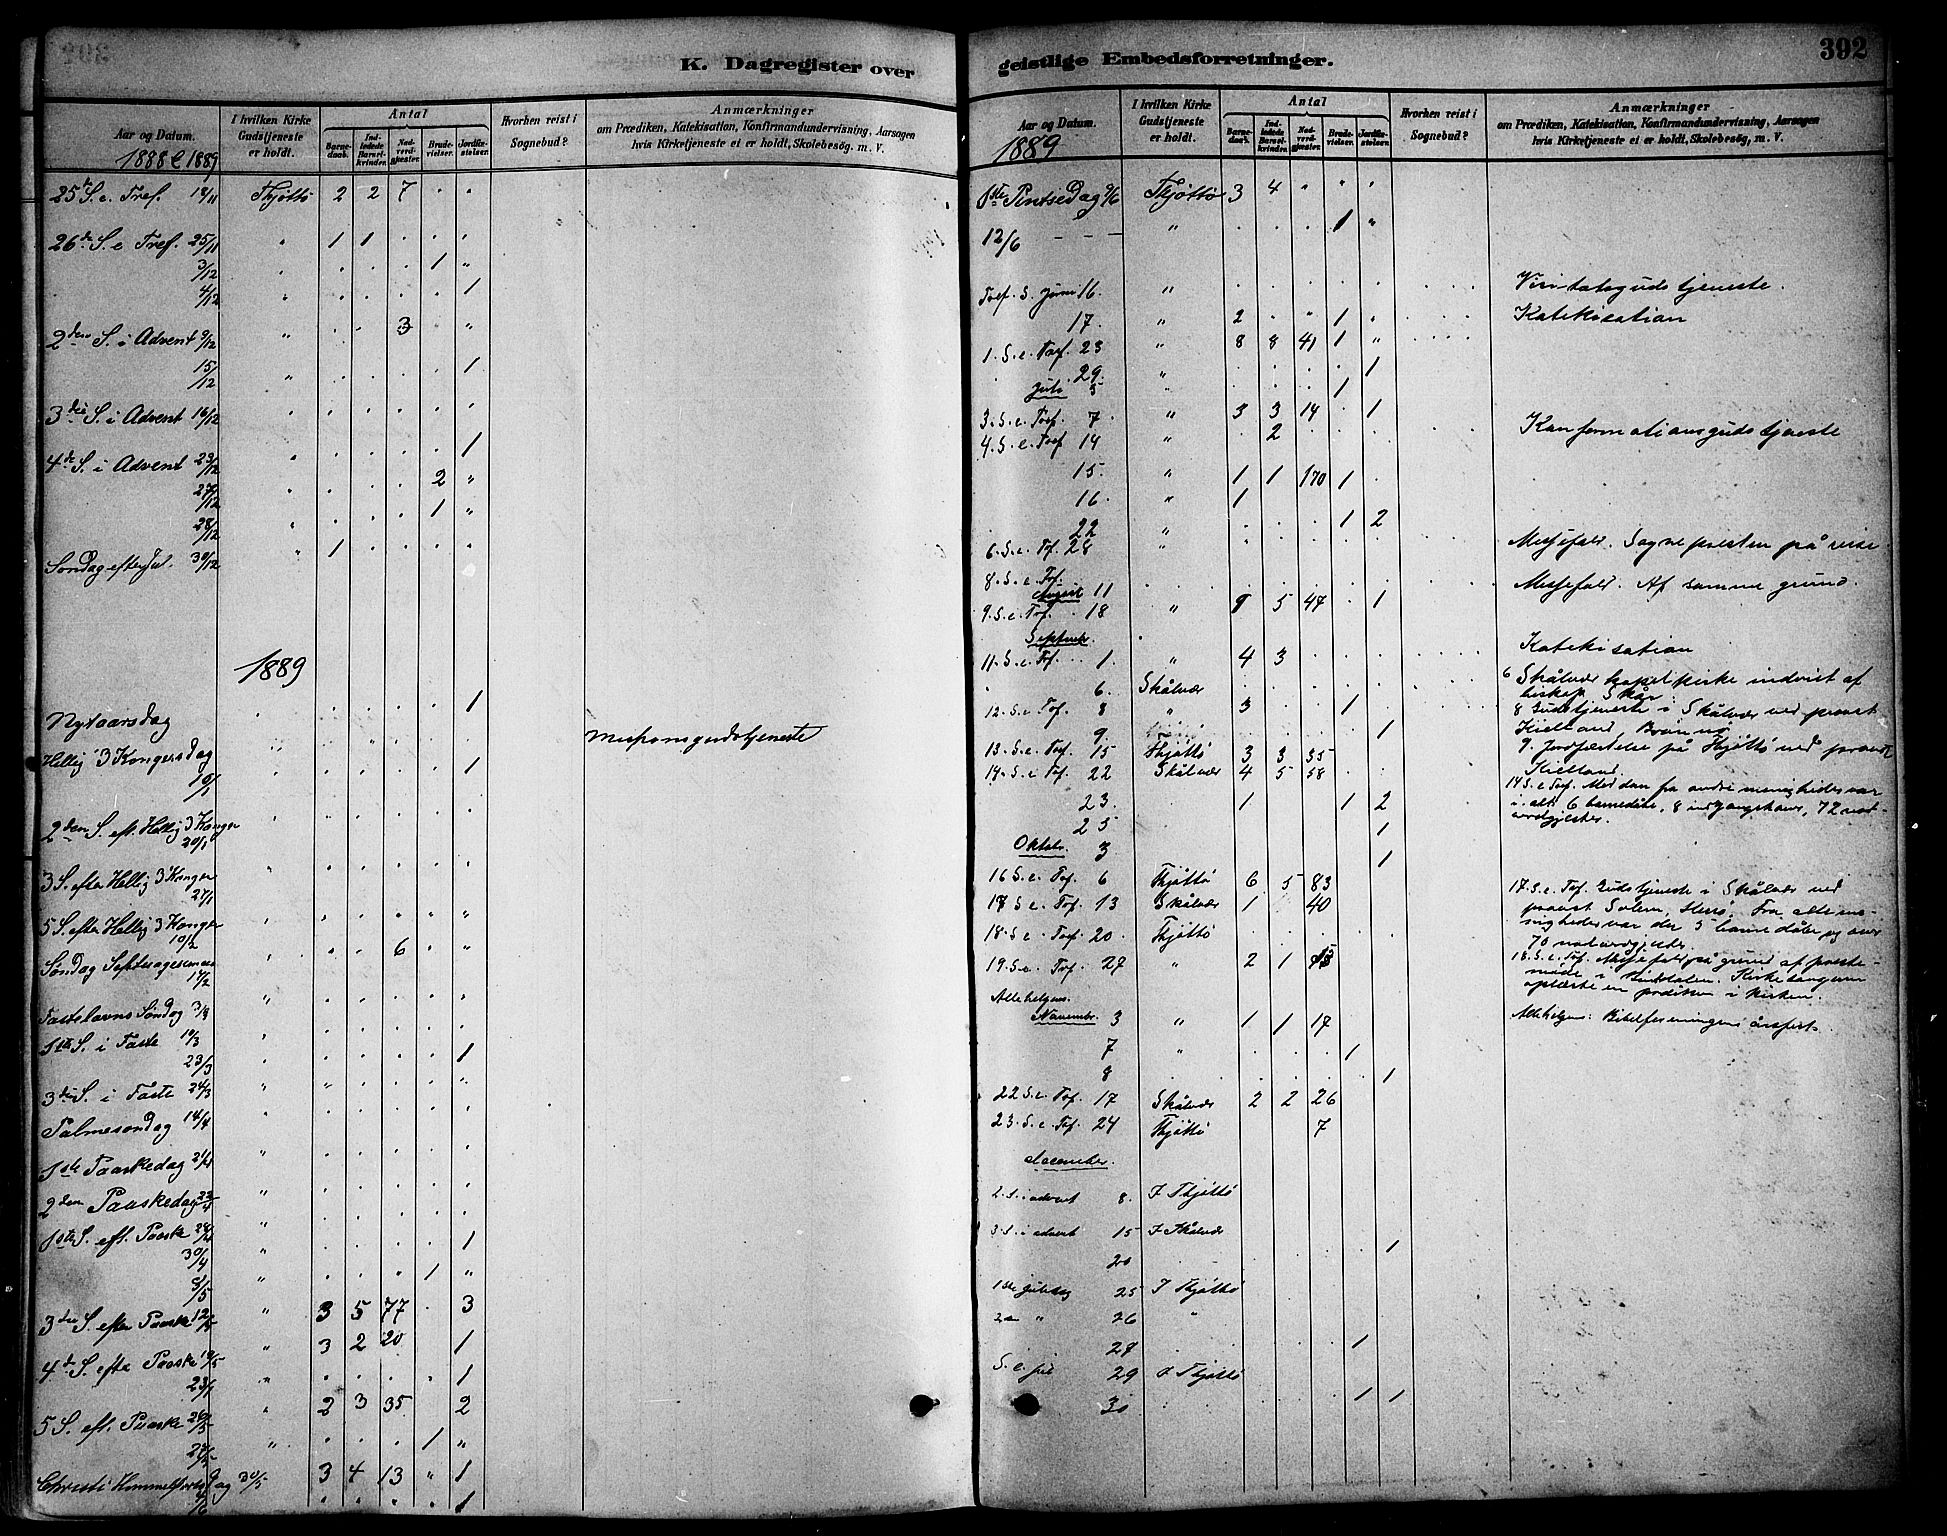 K. Dagregister over
Aar og Datum.
1888 & 1889
I hvilken Kirke Gudstjeneste er holdt.
Antal
Barnedaab.
Indledede Barselkvinder.
Nadverdgjester.
Brudevielser.
Jordfæstelser.
Hvorhen reist i Sognebud?
Anmærkninger
om Prædiken, Katekisation, Konfirmandundervisning, Aarsagen
hvis Kirketjeneste ei er holdt, Skolebesøg. m. V.
25de S. e. Tref. 18/11 Thjøttø 2 2 7 " "
26de S. e Tref. 25/11 " 1 1 . . .
3/12 " . . . 1 "
4/12 " . . . . 1
2den S. i Advent 9/12 " . . 3 . "
15/12 " . . . . 1
3die S. i Advent 16/12 " . . . . .
4de S. i Advent 23/12 " . . . . 1
27/12 " . . . 2 "
28/12 " . . . 1 "
Søndag efter Jul. 30/12 " 1 . . . .
1889
Nytaarsdag . . . . . 1
Hellig 3 Kongersdag " . . " . . Messonsgudstjeneste
10/1 " . . . . 1
2den S. eft. Hellig 3 Konger 20/1 " . . . . .
3 S. efter Hellig 3 Konger 27/1 " . . . . .
5 S. efter Hellig 3 Konger 10/2 " . . . " "
Søndag Septuagesima 17/2 " . . 6 . "
Fastelavns Søndag 3/3 " . . . . .
1ste S. i Faste 10/3 " . . . . .
23/3 " . . . . 1
3die S. i Faste 24/3 " " . . . .
Palmesøndag 14/4 " . . . . .
1ste Paaskedag 21/4 " . . . . .
2den Paaskedag 22/4 " . . . . .
1ste S. eft. Paaske 28/4 " . . . . .
30/4 " . . . . 1
8/5 " . . . 1 "
3die S. efter Paaske 12/5 " 3 5 77 . 3
4de S. efter Paaske 19/5 " 3 2 20 . 1
23/5 " . . . . 1
5 S. eft. Paaske 26/5 " 2 3 35 . 2
27/5 " . . . 1 "
Christi Himmelfartsdag 30/5 3 4 13 " 1
4/6 . . . . 1
geistlige Embedsforretninger.
392
Aar og Datum.
1889
I hvilken Kirke Gudstjeneste er holdt.
Antal
Barnedaab.
Indledede Barselkvinder.
Nadverdgjester.
Brudevielser.
Jordfæstelser.
Hvorhen reist i Sognebud?
Anmærkninger
om Prædiken, Katekisation, Konfirmandundervisning, Aarsagen
hvis Kirketjeneste ei er holdt, Skolebesøg, m. V.
1ste Pintsedag 9/6 Thjøttø 3 4 " " "
12/6 - - - " . . . 1 "
Tref. S. Juni 16. " . . . . . Visitatsgudstjeneste.
17. " 2 . " 1 " Katekisation
1. S. e. Tref. 23 " 8 8 41 1 "
29. " . . . . 1
Juli 5 " . . . 1 .
3. S. e. Tref. 7 " 3 3 14 . 1
4. S. e. Tref 14 " . 2 . . . Konfirmationsgudstjeneste
15. " 1 1 170 1 .
16. " 1
22 " . . . 1 2
6. S. e. Tref. 28 " . . . . . Messefald. Sognepresten på reise
8. S. e. Tref. August 11 . . . . . Messefald. Af samme grund.
9. S. e. Tref. 18 " 9 5 47 . 1
Septembr.
11. S. e. Tref. 1. " 4 3 . . . Katekisation
6. Skålvær . . . . . 6 Skålvær kapelkirke indviet af
biskop Skår
12. S. e Tref. 8 " 3 . . 1 . 8 Gudstjeneste i Skålvær ved provst
Kielland, Brønnø
9. . . . . 1 9. Jordfæstelse på Thjøttø ved provst
Kielland.
13. S. e. Tref. 15 Thjøttø 3 3 35
14. S. e Tref. 22 Skålvær 4 5 58 . . 14 S. e Tref. Med dem fra andre menigheder var
i alt 6 barnedåb, 8 indgangskoner, 72 nat-
verdgjester.
23. 1 1 2
25 . 1
Oktobr. 3 . 1
16 S. e. Tref. 6 Thjøttø 6 5 83
17 S. e. Tref. 13 Skålvær 1 40 17. S. e. Tref. Gudstjeneste i Skålvær ved
provst Solem, Herrø. Fra alle me-
nigheder var der 5 barnedåb og over
70 natverdgjester.
18. S. e Tref. 20. Thjøttø 18. S. e. Tref. Messefald på grund af preste-
møde i Kirkesangeren
oplæste en prediken i kirken.
19. S. e. Tref. 27 " 2 1
Allehelgens.
Novembr. 3 " 1 1 17 Allehelgens: Bibelforeningens årsfest.
7 " . . . 1
8 . . . . 1
22 S. e. Tref. 17 Skålvær 2 2 26
23. S. e. Tref. 24 Thjøttø 7
December.
2. S. i advent 8. I Thjøttø
3 S. i advent 15 I Skålvær
20 . . . . 1
1ste juledag 25 I Thjøttø
2den " 26 "
28 . . . 1
S. e. jul 29 I Thjøttø
30 . . . 1 1